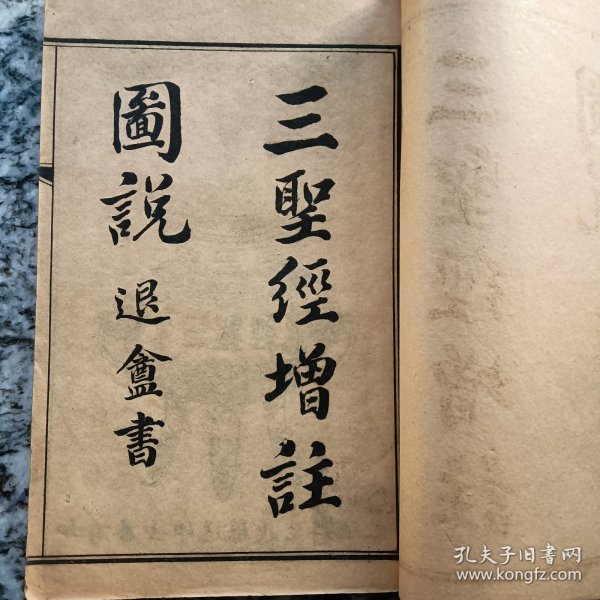 三聖經增註
圖說 退盦書
孔夫子旧书网
www.kongfz.com